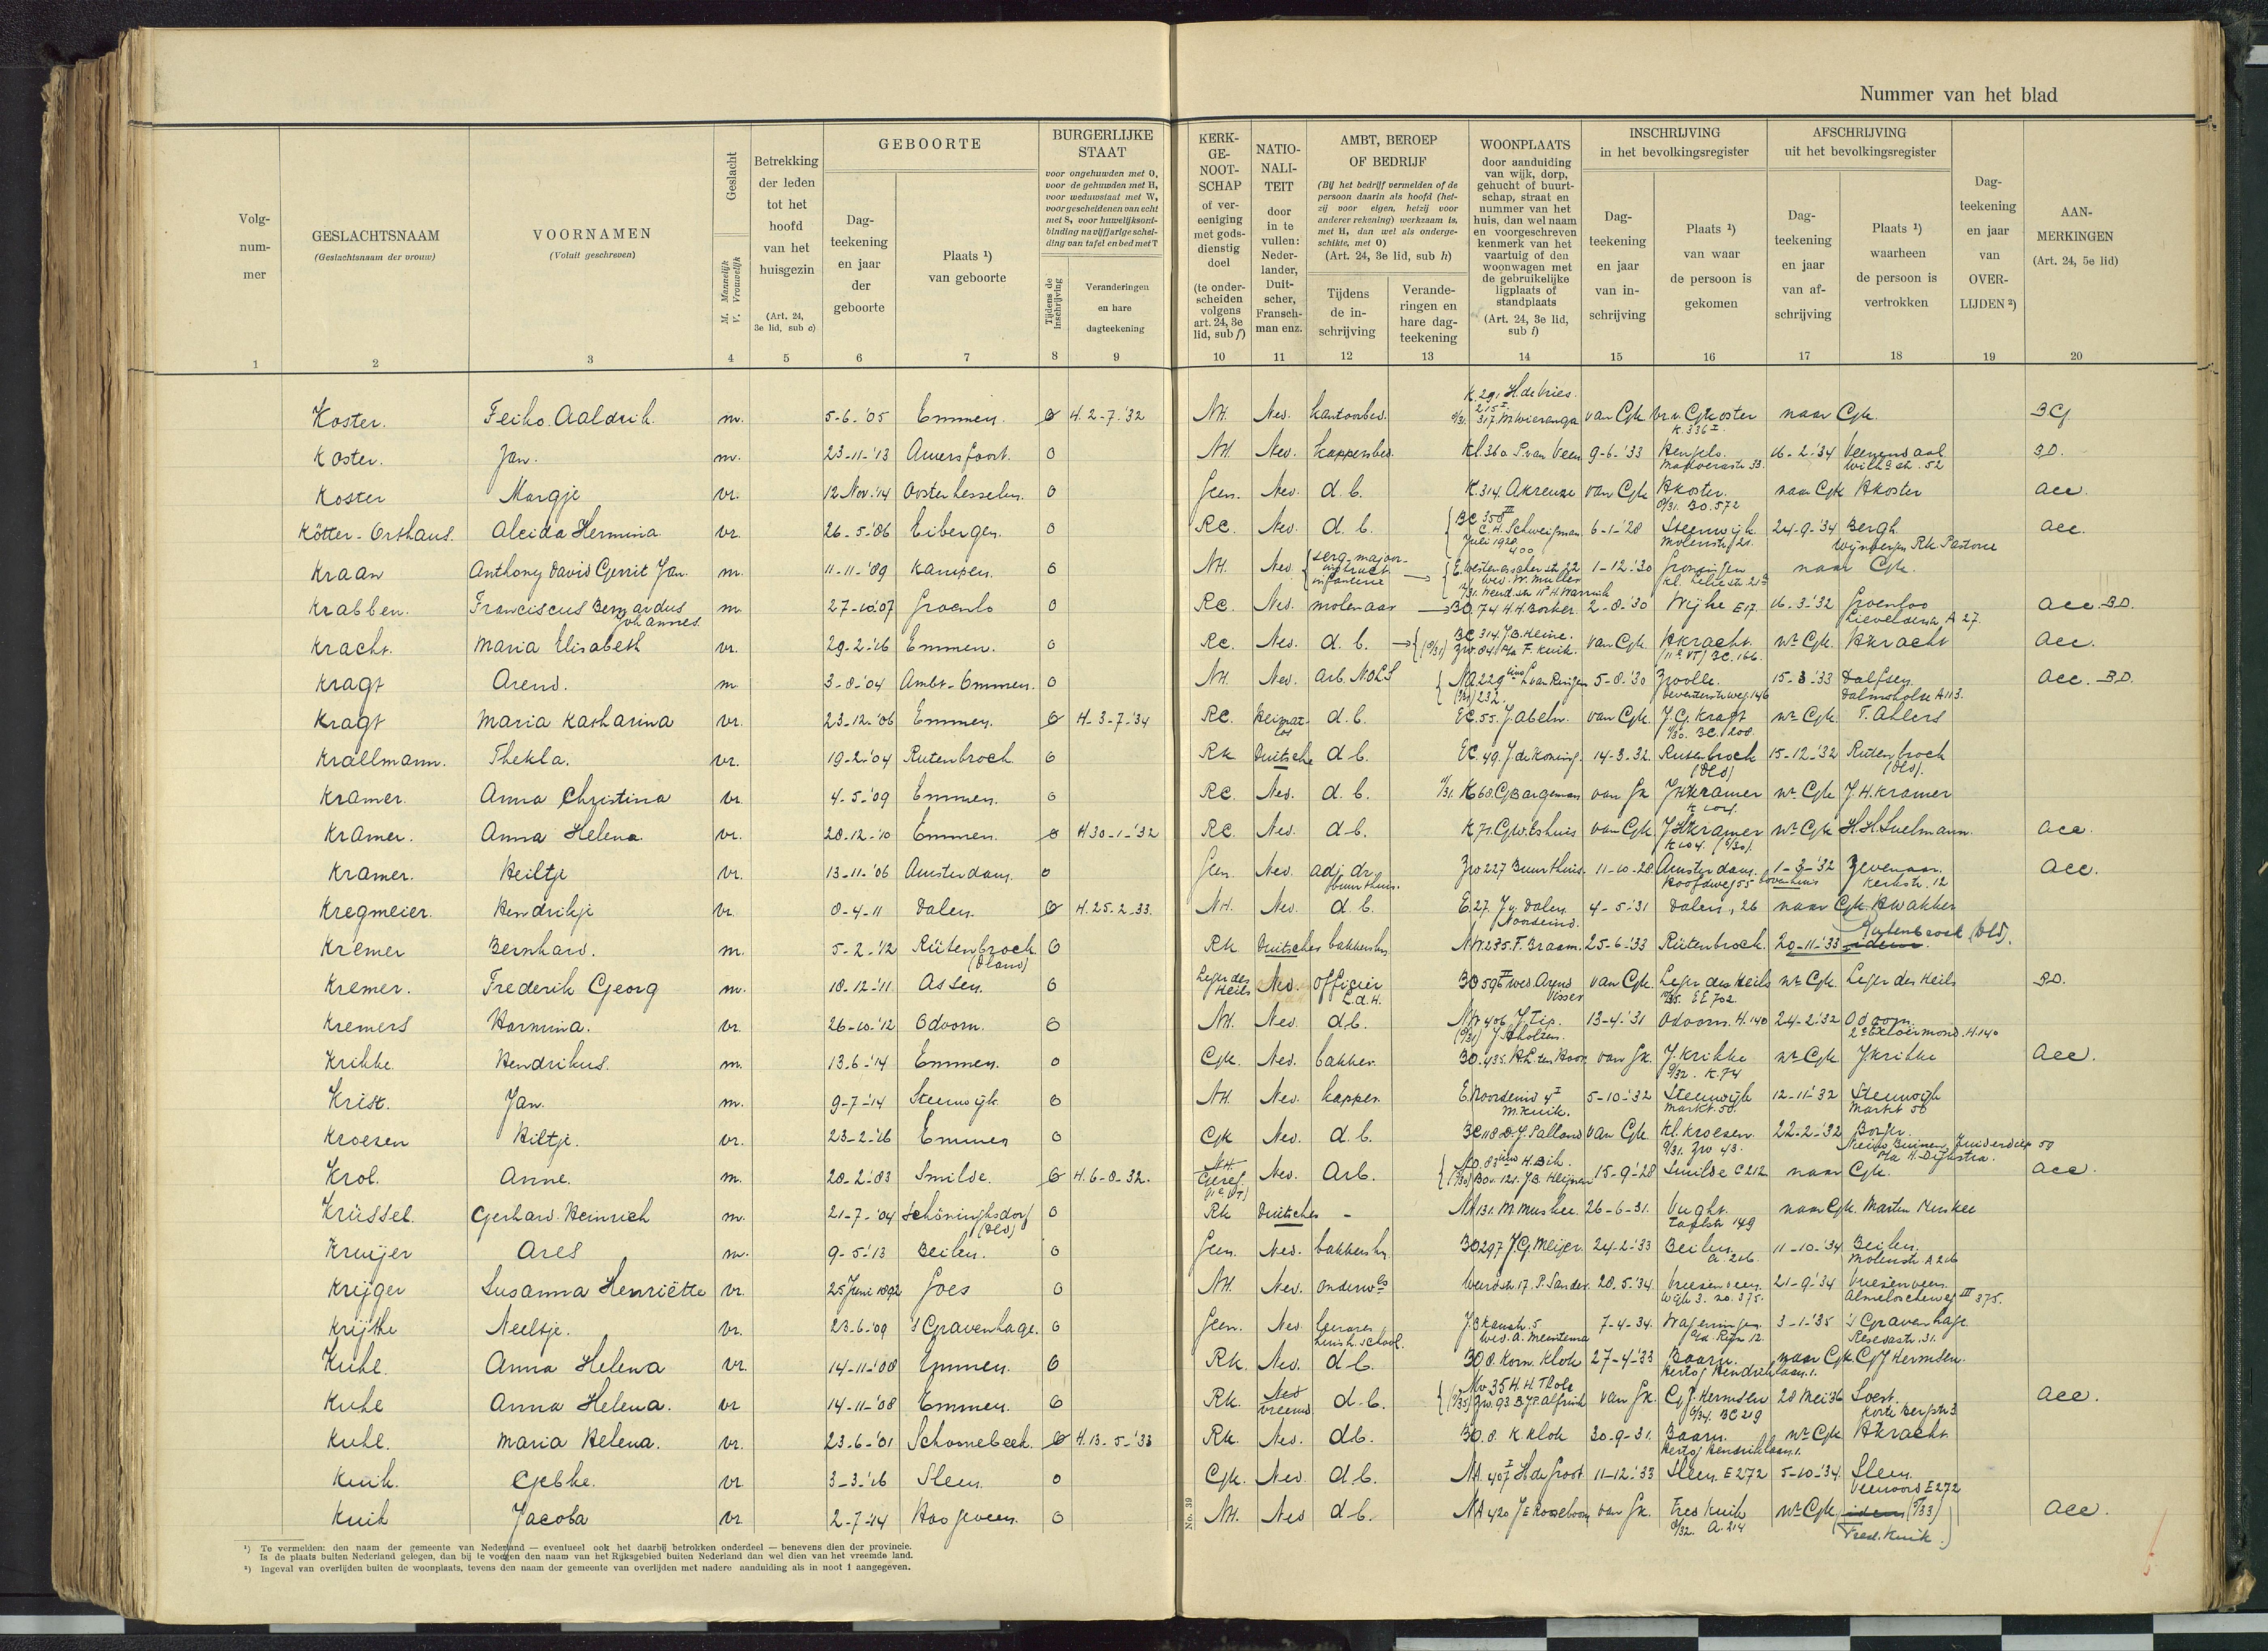 Nummer van het blad
Volg-
num-
mer
GESLACHTSNAAM
(Geslachtsnaam der vrouw)
VOORNAMEN
(Voluit geschreven)
Geslacht
M. Mannelijk
V. Vrouwelijk
Betrekking
der leden
tot het
hoofd
van het
huisgezin
(Art. 24,
3e lid, sub c)
GEBOORTE
Dag-
teekening
en jaar
der
geboorte
Plaats ¹)
van geboorte
BURGERLIJKE
STAAT
voor ongehuwden met O,
voor de gehuwden met H,
voor weduwstaat met W,
voor gescheidenen van echt
met S, voor huwelijksont-
binding na vijfjarige schei-
ding van tafel en bed met T
Tijdens de
inschrijving
Veranderingen
en hare
dagteekening
KERK-
GE-
NOOT-
SCHAP
of ver-
eeniging
met gods-
dienstig
doel
(te onder-
scheiden
volgens
art. 24, 3e
lid, sub f)
NATIO-
NALI-
TEIT
door
in te
vullen:
Neder-
lander,
Duit-
scher,
Fransch-
man enz.
AMBT, BEROEP
OF BEDRIJF
(Bij het bedrijf vermelden of de
persoon daarin als hoofd (het-
zij voor eigen, hetzij voor
anderer rekening) werkzaam is,
met H, dan wel als onderge-
schikte, met O)
(Art. 24, 3e lid, sub h)
Tijdens
de in-
schrijving
Verande-
ringen en
hare dag-
teekening
WOONPLAATS
door aanduiding
van wijk, dorp,
gehucht of buurt-
schap, straat en
nummer van het
huis, dan wel naam
en voorgeschreven
kenmerk van het
vaartuig of den
woonwagen met
de gebruikelijke
ligplaats of
standplaats
(Art. 24, 3e lid,
sub i)
INSCHRIJVING
in het bevolkingsregister
Dag-
teekening
en jaar
van in-
schrijving
Plaats ¹)
van waar
de persoon is
gekomen
AFSCHRIJVING
uit het bevolkingsregister
Dag-
teekening
en jaar
van af-
schrijving
Plaats ¹)
waarheen
de persoon is
vertrokken
Dag-
teekening
en jaar
van
OVER-
LIJDEN ²)
AAN-
MERKINGEN
(Art. 24, 5e lid)
1 2 3 4 5 6 7 8 9 10 11 12 13 14 15 16 17 18 19 20
K 291 H. de Vries.
Koster. Feiko Aaldrik m. 5-6-'05 Emmen. O H. 2-7-'32 NH. Ned. kantoorbed. 317. M Wierenga van Cgk naar Cgk.
K. 336 I
Koster. Jan. m. 23-11-'13 Amersfoort. O NH. Ned. kappersbed. 9-6-'33 Hengelo. 16-2-'34 Veenendaal BD.
Koster Margje vr. 12 Nov. '14 Oosterhesselen. O Geen. Ned. d.b. K. 314. van Cgk HKoster. naar Cgk HKoster acc.
BO. 572
Kötter-Orthaus. Aleida Hermina vr. 26-5-'06 Eibergen. O RC. Ned. d.b. 6-1-'28 Steenwijk 24-9-'34 Bergh. acc.
Molenstr. 21. Wijnbergen RK. Pastorie
Kraan Anthony David Gerrit Jan. m. 11-11-'09 Kampen. O NH. Ned. serg. majoor 1-12-'30 Groningen naar Cgk.
infanterie wed. W. Muller
Krabben. Franciscus Bernardus m. 27-10-'07 Groenlo O RC. Ned. molenaar BO. 74 H.H. Borker. 2-8-'30 Wijhe E17. 16-3-'32 Groenloo acc. BD.
Johannes. Lievelderw. A 27.
Kracht. Maria Elisabeth vr. 29-2-'16 Emmen. O RC. Ned. d.b. BC 314. J.B. Heine. van Cgk HKracht. nr Cgk. HKracht acc.
BC. 166.
Kragt Arend. m 3-8-'04 Ambt-Ommen. O NH. Ned. arb. NOLS 5-8-'30 Zwolle. 15-3-'33 Dalfsen. acc. BD.
Deventerstrweg 146 Dalmsholte A 113.
Kragt Maria Katharina vr. 23-12-'06 Emmen. O H. 3-7-'34 RC. Heimat- d.b. EC. 55. J. Abeln. van Cgk. J.G. Kragt nr Cgk. F. Ahlers
los BC. 208.
Krallmann. Thekla. vr. 19-2-'04 Rütenbroch. O RK Duitsche d.b. EC. 49. J. de Koning. 14-3-32. Rütenbrock 15-12-'32 Rütenbroch
(Dld) (Dld).
Kramer. Anna Christina vr. 4-5-'09 Emmen. O RC. Ned. d.b. K68. G Bargeman van Gk J.H. Kramer nr Cgk J.H. Kramer
K 104.
Kramer. Anna Helena vr. 28-12-'10 Emmen. O H 30-1-'32 RC. Ned. d.b. K. 71. van Cgk J.H. Kramer nr Cgk H.H. Suelmann. acc.
K 104.
Kramer. Heiltje vr. 13-11-'06 Amsterdam. O Geen. Ned. adj. dr. Zw 227 Buurthuis. 11-10-28 Amsterdam. 1-3-'32 Zevenaar. acc.
buurthuis. Hoofdweg 55 bovenhuis Kerkstr. 12
Kregmeier. Hendrikje vr. 8-4-11 Dalen. O H. 25.2.33. NH. Ned. d.b. E. 27. J.v. Dalen. 4-5-'31 Dalen, 26 naar Cgk. HWakker
Noordeind.
Kremer Bernhard. m. 5-2-'12 Rütenbroch O RK Duitscher bakkerskn. NW. 235. F. Braam. 25-6-'33 Rütenbrock. 20-11-'33 idem. Rutenbrock (Dld).
(Dland)
Kremer. Frederik Georg m. 18-12-'11 Assen. O Leger des Ned. officier BO 596 II wed. Arend van Cgk. Leger des Heils nr Cgk. Leger des Heils BD.
Heils L.d.H. Visser EE 702
Kremers Harmina. vr. 26-10-'12 Odoorn. O NH. Ned. d.b. NW 406 J Tip. 13-4-'31 Odoorn. H. 140 24-2-'32 Odoorn.
2e Exloërmond. H. 140
Krikke. Hendrikus. m. 13-6-'14 Emmen. O Cgk. Ned. bakker. van Gk. J. Krikke nr Cgk J Krikke acc.
9/32. K. 74
Krist. Jan. m. 9-7-'14 Steenwijk O NH. Ned. kapper. E. Noordeind 4 I 5-10-'32 Steenwijk 12-11-'32 Steenwijk
M. Kuik. Markt. 50. Markt 50
Kroezen Hiltje. vr. 23-2-'16 Emmen O Cgk Ned. d.b. van Cgk Kl. Kroezen. 22-2-'32 Borger.
Zw 43.
Krol. Anne. m. 20-2-'83 Smilde. O H. 6-8-32. NH. Ned. Arb. 15-9-'28 Smilde C 212 naar Cgk. acc.
Geref.
Krüssel. Gerhard Heinrich m. 21-7-'04 Schöninghsdorf O RK Duitscher - 26-6-31. Vught. naar Cgk. Marten Muskee
(Dld) 149
Kruijer Ares m. 9-5-'13 Beilen. O Geen. Ned. bakkerskn. BO 297 J.G. Meijer. 24-2-'33 Beilen. 11-10-'34 Beilen.
A. 216. Molenstr. A 216
Krijger Susanna Henriëtte vr. 25 Juni 1892 Goes O NH. Ned. onderw.es 28-5-'34. Vriezenveen. 21-9-'34 Vriezenveen.
Wijk 3. no. 375. Almeloscheweg III 375.
Krijthe Neeltje. vr. 23-6-'09 's Gravenhage. O Geen. Ned. leerares 7-4-34. Wageningen. 3-1-'35 's Gravenhage
huish. school. wed. A. Meintema Resedastr. 31.
Kuhl. Anna Helena vr. 14-11-'08 Emmen. O RK. Ned. d.b. BO 8. Korn. Klok 27-4-'33 Baarn. naar Cgk. C.G.J Hermsen.
Hertog Hendriklaan 1.
Kuhl Anna Helena. vr 14-11-'08 Emmen. O RK. Ned d.b. NW 35 H.H. Thole van Gk. 28 Mei '36 Soest. acc.
vreemd BC 219 Korte Bergstr 3
Kuhl. Maria Helena. vr. 23-6-'01 Schoonebeek. O H. 13-5-'33 RK. Ned. d.b. BO. 8. K. Klok 30-9-31. Baarn. nr Cgk HKracht
Hertog Hendriklaan 1.
Kuik. Gebke. vr 3-3-'16 Sleen. O Cgk. Ned d.b. NA 407 I H. de Groot 11-12-'33 Sleen. E 272 5-10-'34. Sleen.
Veenoord E 272
Kuik Jacoba vr 2-7-'14 Hoogeveen. O NH. Ned d.b. NA 420 J E Rozeboom van Gk. Fred Kuik nr Cgk idem acc.
A. 214 Fred. Kuik
No. 39
¹) Te vermelden: den naam der gemeente van Nederland — eventueel ook het daarbij betrokken onderdeel — benevens dien der provincie.
Is de plaats buiten Nederland gelegen, dan bij te voegen den naam van het Rijksgebied buiten Nederland dan wel dien van het vreemde land.
²) Ingeval van overlijden buiten de woonplaats, tevens den naam der gemeente van overlijden met nadere aanduiding als in noot 1 aangegeven.